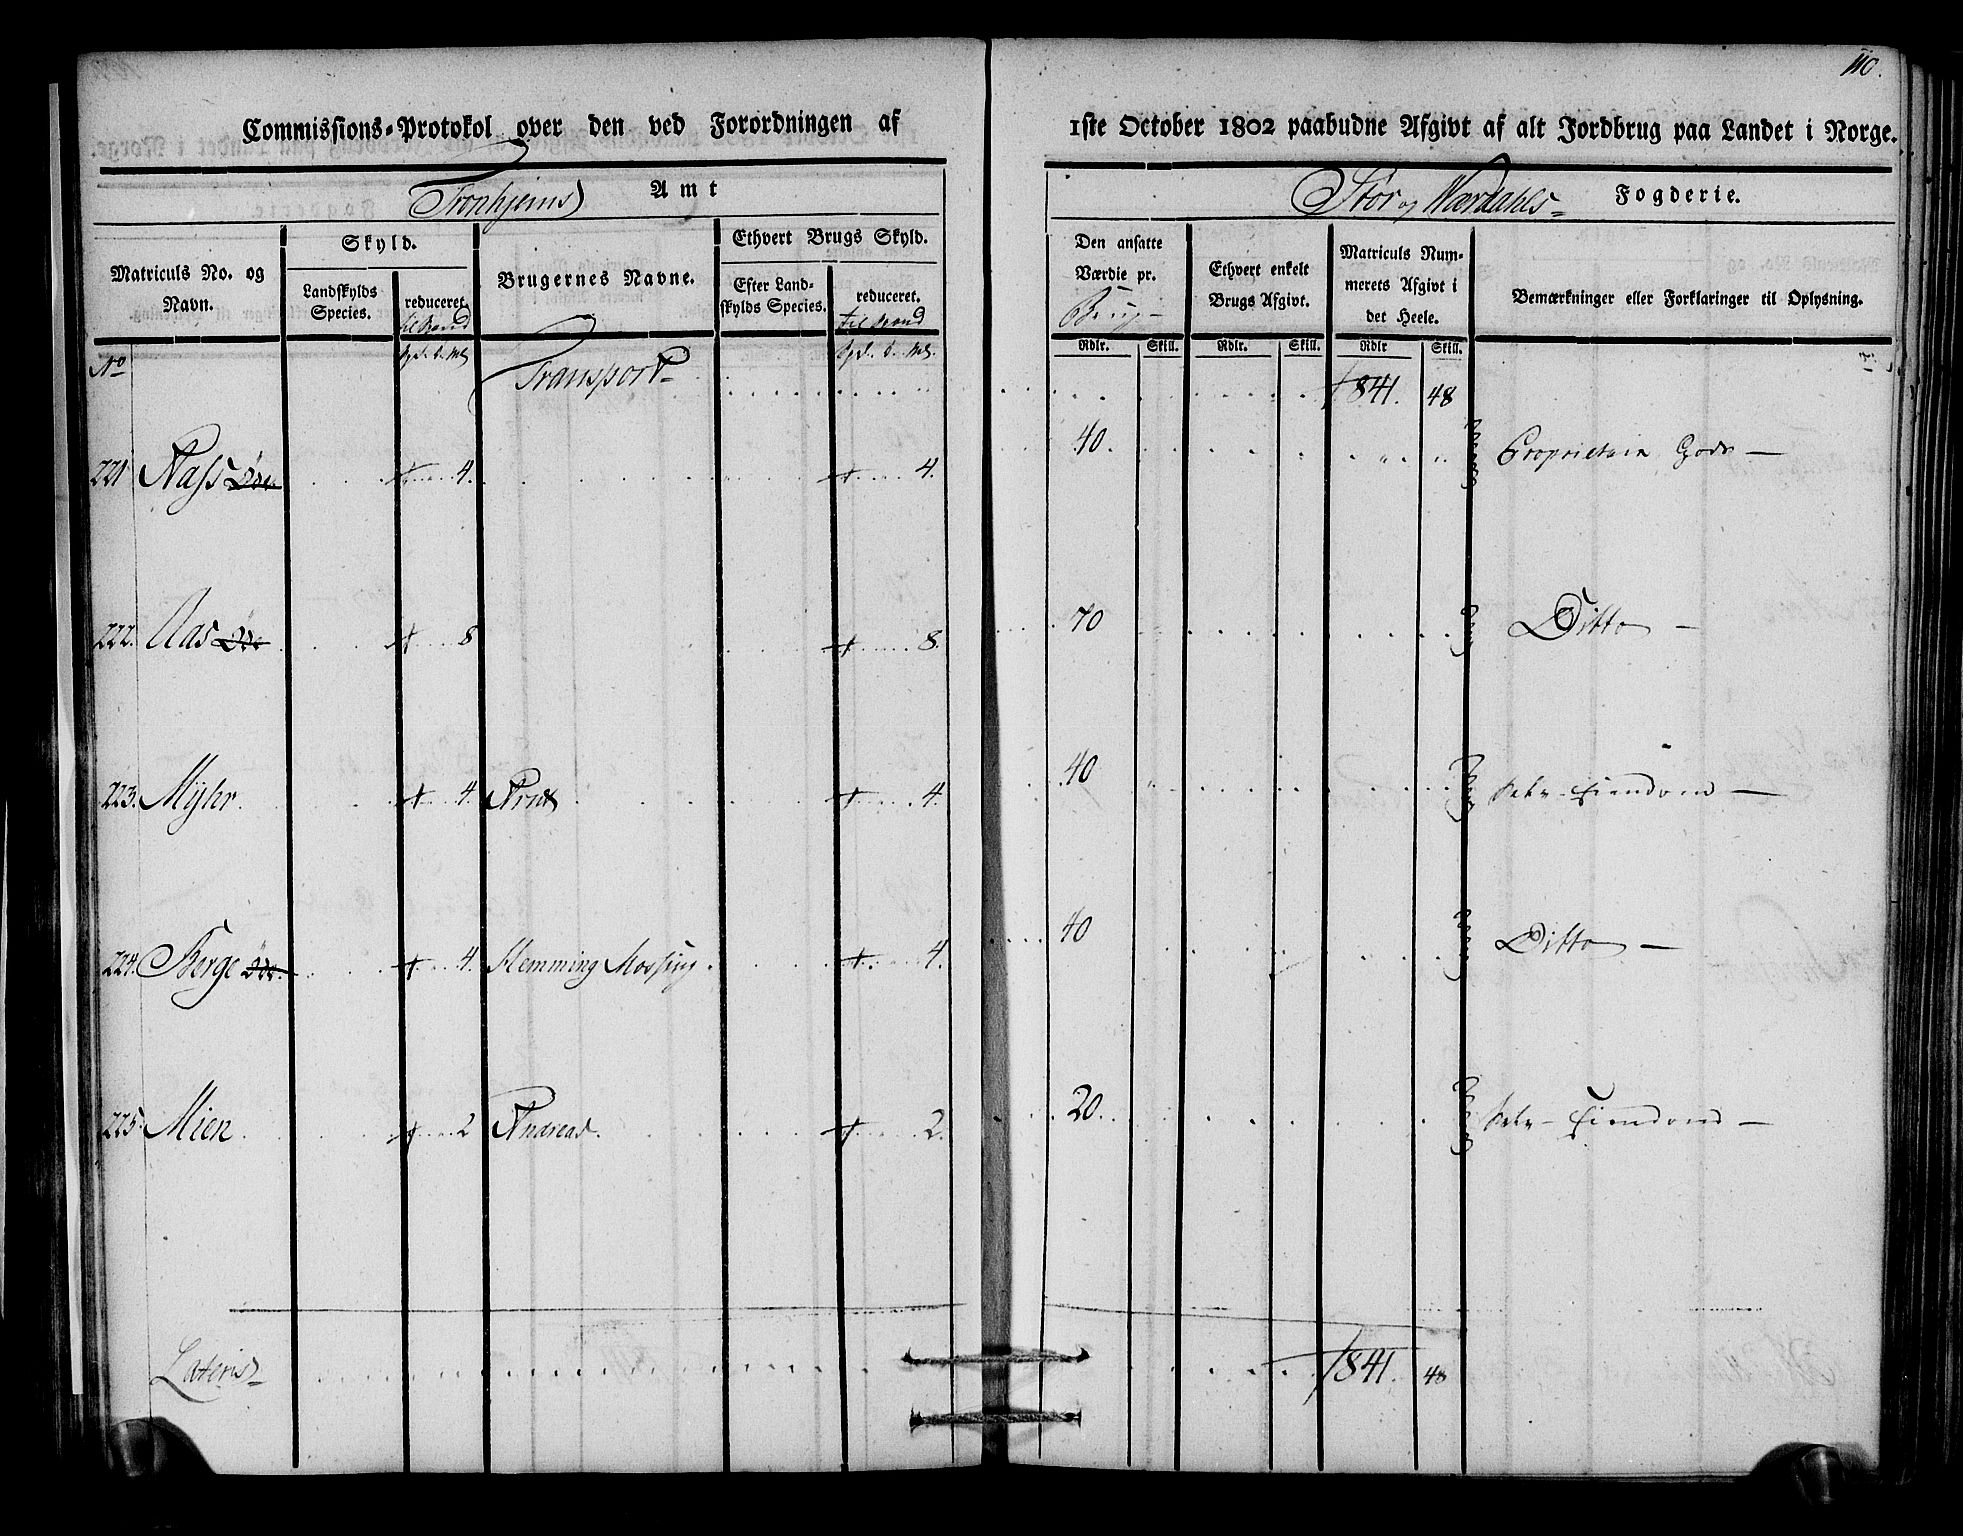 110.
Commissions-Protokol over den ved Forordningen af 1ste October 1802 paabudne Afgivt af alt Jordbrug paa Landet i Norge.
Tronhjems Amt
Stor og Værdahls Fogderie.
Matriculs No. og Navn.
Skyld.
Landskylds Species.
reduceret.
Brugernes Navne.
Ethvert Brugs Skyld.
Efter Landskylds Species.
reduceret.
Den ansatte Værdie pr. Brug
Ethvert enkelt Brugs Afgivt.
Matriculs Nummerets Afgivt i det Heele.
Bemærkninger eller Forklaringer til Oplysning.
Rdlr. Skill. Rdlr. Skill. Rdlr Skill.
No Transport 1841. 48
221 Øde 4. 4. 40. Proprietair Gods
222. Aas Øde 8 8. 70 Ditto
223. Myhr. 4. 4. 40 Eiendom
224. Berge Øde. 4. Hemming 4. 40 Ditto
225. Mien. 2 Andreas. 2. 20. Eiendom
Lateris 1841. 48